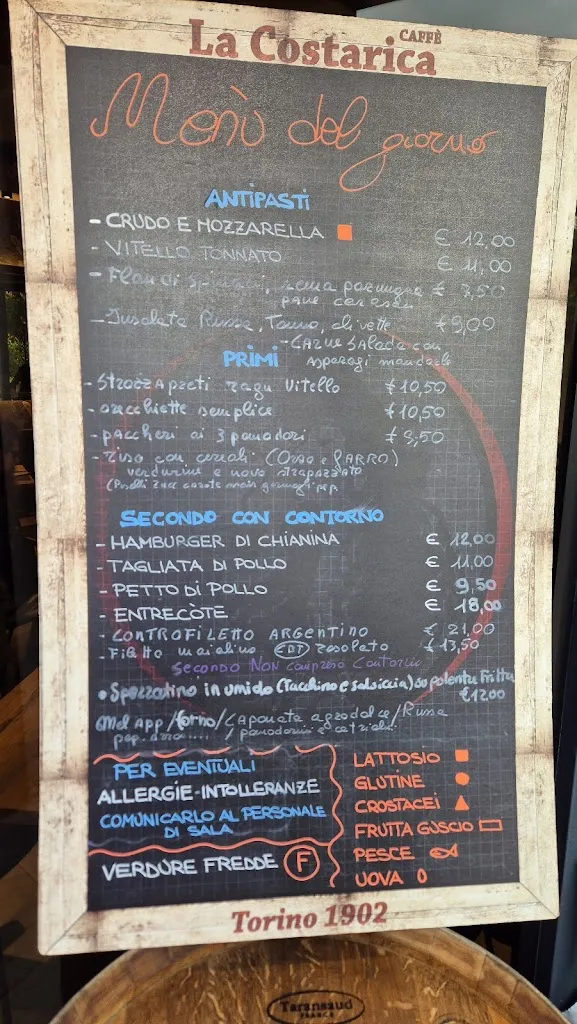 La Costarica
CAFFÈ
Menù del giorno
ANTIPASTI
- CRUDO E MOZZARELLA € 12,00
- VITELLO TONNATO € 11,00
- Flan di spinaci, parmigna €
pane
- Insalata Russa, Tonno, olivette €9,00
- CARNE SALADA con
Asparagi mandorle
PRIMI
- STROZZAPRETI ragu Vitello €10,50
- orecchiette semplice €10,50
- paccheri ai 3 pomodori € 9,50
- riso con cereali (Orzo e FARRO)
verdurine e uovo strapazzato
SECONDO CON CONTORNO
- HAMBURGER DI CHIANINA € 12,00
- TAGLIATA DI POLLO € 11,00
- PETTO DI POLLO € 9,50
- ENTRECÔTE € 18,00
- CONTROFILETTO ARGENTINO € 21,00
- Filetto maialino CBT rosolato € 13,50
SECONDO NON compreso Contorno
• Spezzatino in umido (Tacchino e salsiccia) su polenta Fritta
€12.00
/forno/Caponata agrodolce/Russa
/pomodorini e cetrioli
PER EVENTUALI
ALLERGIE-INTOLLERANZE
COMUNICARLO AL PERSONALE
DI SALA
VERDURE FREDDE F
LATTOSIO
GLUTINE
CROSTACEI
FRUTTA GUSCIO
PESCE
UOVA
Torino 1902
Taransaud
FRANCE